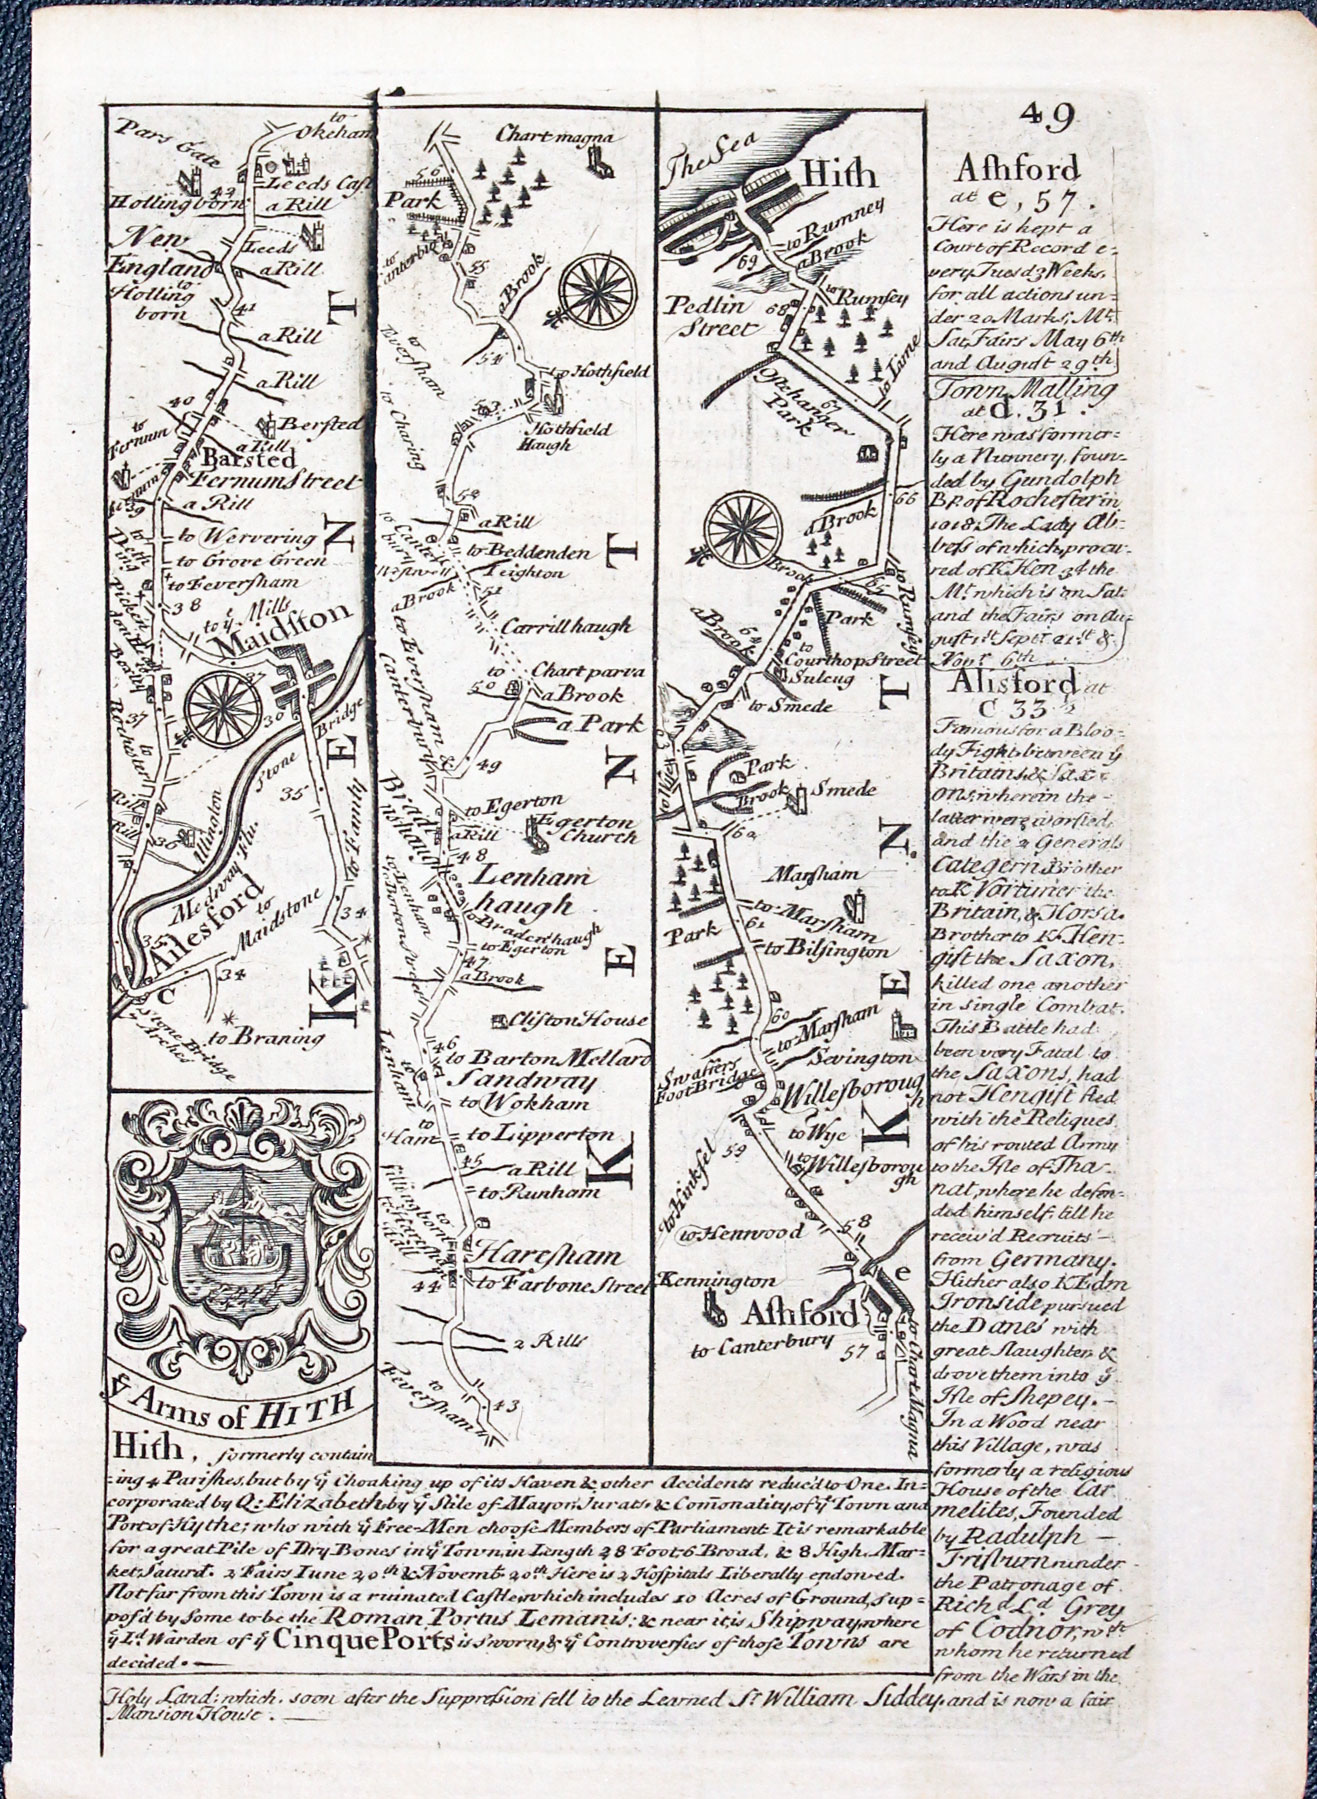 49
Ashford
at e, 57.
Here is kept a
Court of Record e=
very Tuesd 3 Weeks,
for all actions un=
der 20 Marks; Mt.
Sat. Fairs May 6th
and August 29th
Town Malling
at d. 31.
Here was former=
ly a Nunnery, foun=
ded by Gundolph
BP. of Rochester in
1018; The Lady Ab=
bess of which, procu=
red of K. Hen 3d the
Mt. which is on Sat.
and the Fairs on Au=
gust 1st Septr 21st &
Novr 6th
Alisford at
C 33
Famous for a Bloo=
dy Fight between ye
Britains & Sax=
ons; wherein the
latter were worsted,
and the 2 Generals
Categern, Brother
to K. Vortimer the
Britain, & Horsa.
Brother to K. Hen=
gist the Saxon,
killed one another
in single Combat.
This Battle had
been very Fatal to
the Saxons, had
not Hengist fled
with the Reliques
of his routed Army
to the Isle of Tha=
nat, where he defen=
ded himself, till he
receiv'd Recruits
from Germany.
Hither also K Edm
Ironside pursued
the Danes with
great slaughter &
drove them into ye
Isle of Shepey.
In a Wood near
this Village, was
formerly a religious
House of the Car
melites, Founded
by Radulph
Frisburn under
the Patronage of
Richd Ld Grey
of Codnor, wth
whom he returned
from the Wars in the
Holy Land: which, soon after the Suppression fell to the Learned Sr William Siddey, and is now a fair
Mansion House.
to
Okeham
Pars Gate
Leeds Cast
42
Hollingborn
a Rill
New
England
Leeds
a Rill
to
Holling
born
41
a Rill
a Rill
40
to
Fernum
Bersted
a Rill
Barsted
Fernum Street
39
a Rill
to Wervering
to Grove Green
to Feversham
38
to ye Mills
Maidston
37
36
Bridge
37
to
Rochester
Stone
35
Rill
Rill
Illington
Medway Flu.
to Fanty
34
Ailesford
to
Maidstone
35
C
34
Stone Bridge
7 Arches
to Braning
KENT
ye Arms of HITH
Chart magna
56
Park
to
Canterbury
55
a Brook
54
to
Eversham
to Hothfield
53
to Charing
Hothfield
Haugh
52
a Rill
to Beddenden
Leighton
51
a Brook
Carrill haugh
to
Chart parva
50
a Brook
to Eversham &
Canterbury
a Park
49
to Egerton
a Rill
Egerton
Church
48
Lenham
haugh
to
Bradenhaugh
to Egerton
47
a Brook
Clifton House
to
Lenham
46
to Barton Mellard
Sandway
to Wokham
to
Ham
to Lipperton
45
a Rill
to Runham
Haresham
to Farbone Street
44
2 Rills
to
Feversham
43
KENT
The Sea
Hith
to Rumney
a Brook
69
to
Rumsey
Pedlin
Street
68
to Lime
Ostehanger
Park
67
66
a Brook
Brook
65
to Rumsey
Park
a Brook
64
to
Courthop Street
Suleug
to Smede
63
Park
Brook
Smede
62
Marsham
to Marsham
61
Park
to Bilsington
60
to Marsham
Sevington
Swasiers
Foot Bridge
Willesboroug
h
to Wye
59
to
Willesborou
gh
to Kinksel
to Henwood
58
Kennington
e
Ashford
to Canterbury
57
to Chart Magna
KENT
Hith, formerly contain
=ing 4 Parishes, but by ye Choaking up of its Haven & other Accidents reduc'd to One. In=
corporated by Q: Elizabeth, by ye Stile of Mayor, Jurats & Comonality, of ye Town and
Port of Hythe; who with ye Free-Men choose Members of Parliament. It is remarkable
for a great Pile of Dry Bones in ye Town, in Length 28 Foot 6 Broad, & 8 High. Mar=
ket, Saturd. 2 Fairs Iune 20th & Novemb. 20th Here is 2 Hospitals Liberally endowed.
Not far from this Town is a ruinated Castle, which includes 10 Acres of Ground, sup=
pos'd by some to be the Roman Portus Lemanis: & near it is Shipway, where
ye Ld Warden of ye Cinque Ports is sworn, & ye Controversies of those Towns are
decided.